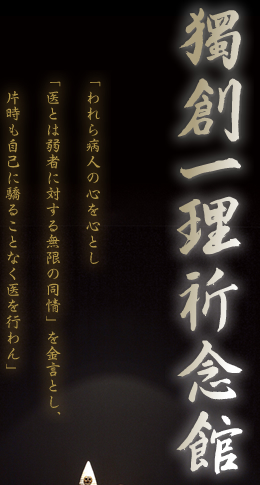 獨創一理祈念館
「われら病人の心を心とし
「医とは弱者に対する無限の同情」を金言とし、
片時も自己に驕ることなく医を行わん」